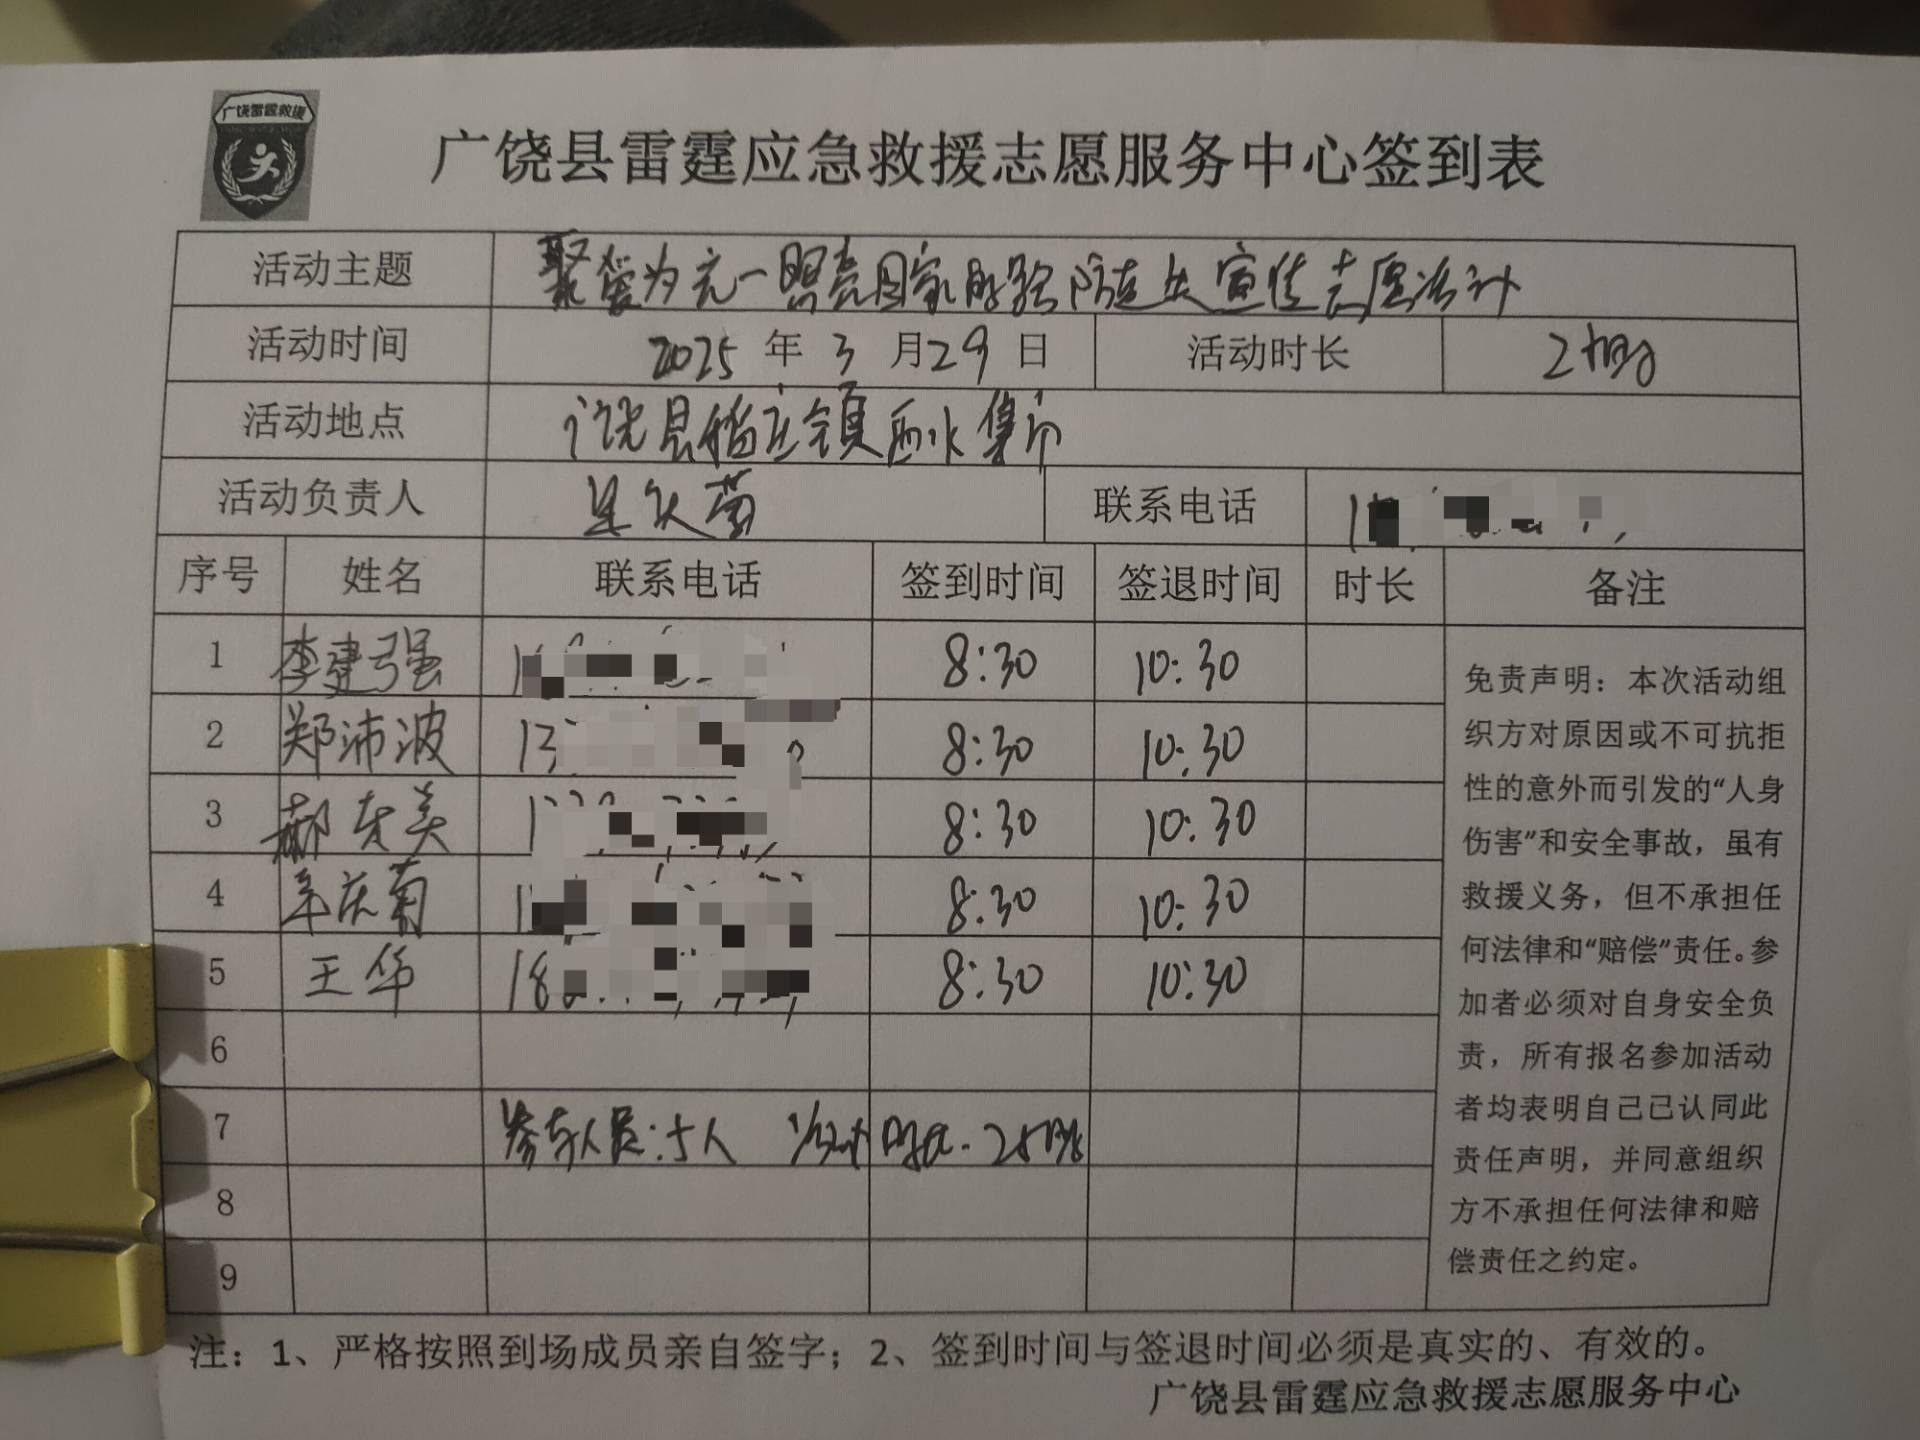 广饶雷霆救援
广饶县雷霆应急救援志愿服务中心签到表
活动主题 聚爱为光一照亮回家的路防走失宣传志愿活动
活动时间 2025 年 3 月 29 日 活动时长 2小时
活动地点 广饶县稻庄镇西水集市
活动负责人 联系电话
序号 姓名 联系电话 签到时间 签退时间 时长 备注
1 李建强 8:30 10:30
2 郑沛波 13 8:30 10:30
3 郝 美 8:30 10:30
4 庆菊 8:30 10:30
5 王华 18 8:30 10:30
6
7 参与人员:5人
8
9
免责声明：本次活动组
织方对原因或不可抗拒
性的意外而引发的“人身
伤害”和安全事故，虽有
救援义务，但不承担任
何法律和“赔偿”责任。参
加者必须对自身安全负
责，所有报名参加活动
者均表明自己已认同此
责任声明，并同意组织
方不承担任何法律和赔
偿责任之约定。
注：1、严格按照到场成员亲自签字；2、签到时间与签退时间必须是真实的、有效的。
广饶县雷霆应急救援志愿服务中心